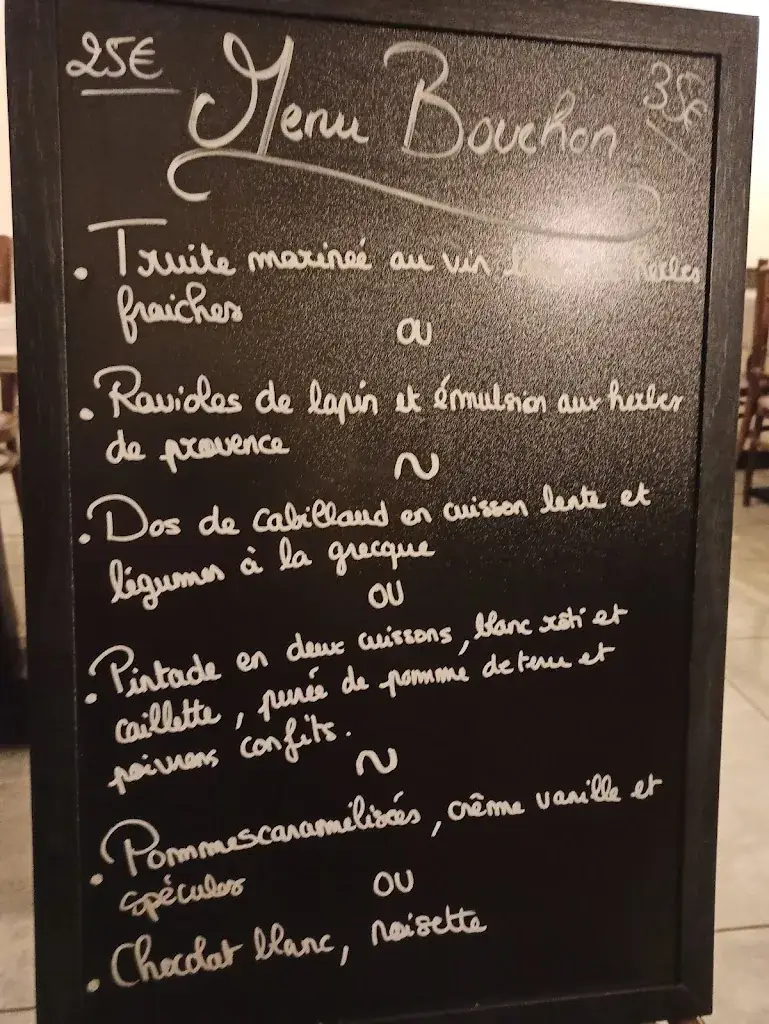 25€ Menu Bouchon 35€
• Truite marineé au vin herbes
fraiches
OU
• Ravioles de lapin et émulsion aux herbes
de provence
~
• Dos de cabillaud en cuisson lente et
légumes à la grecque
OU
• Pintade en deux cuissons, blanc rôti et
caillette, purée de pomme de terre et
poivrons confits.
~
• Pommes caramélisées, crême vanille et
spéculos
OU
• Chocolat blanc, noisette